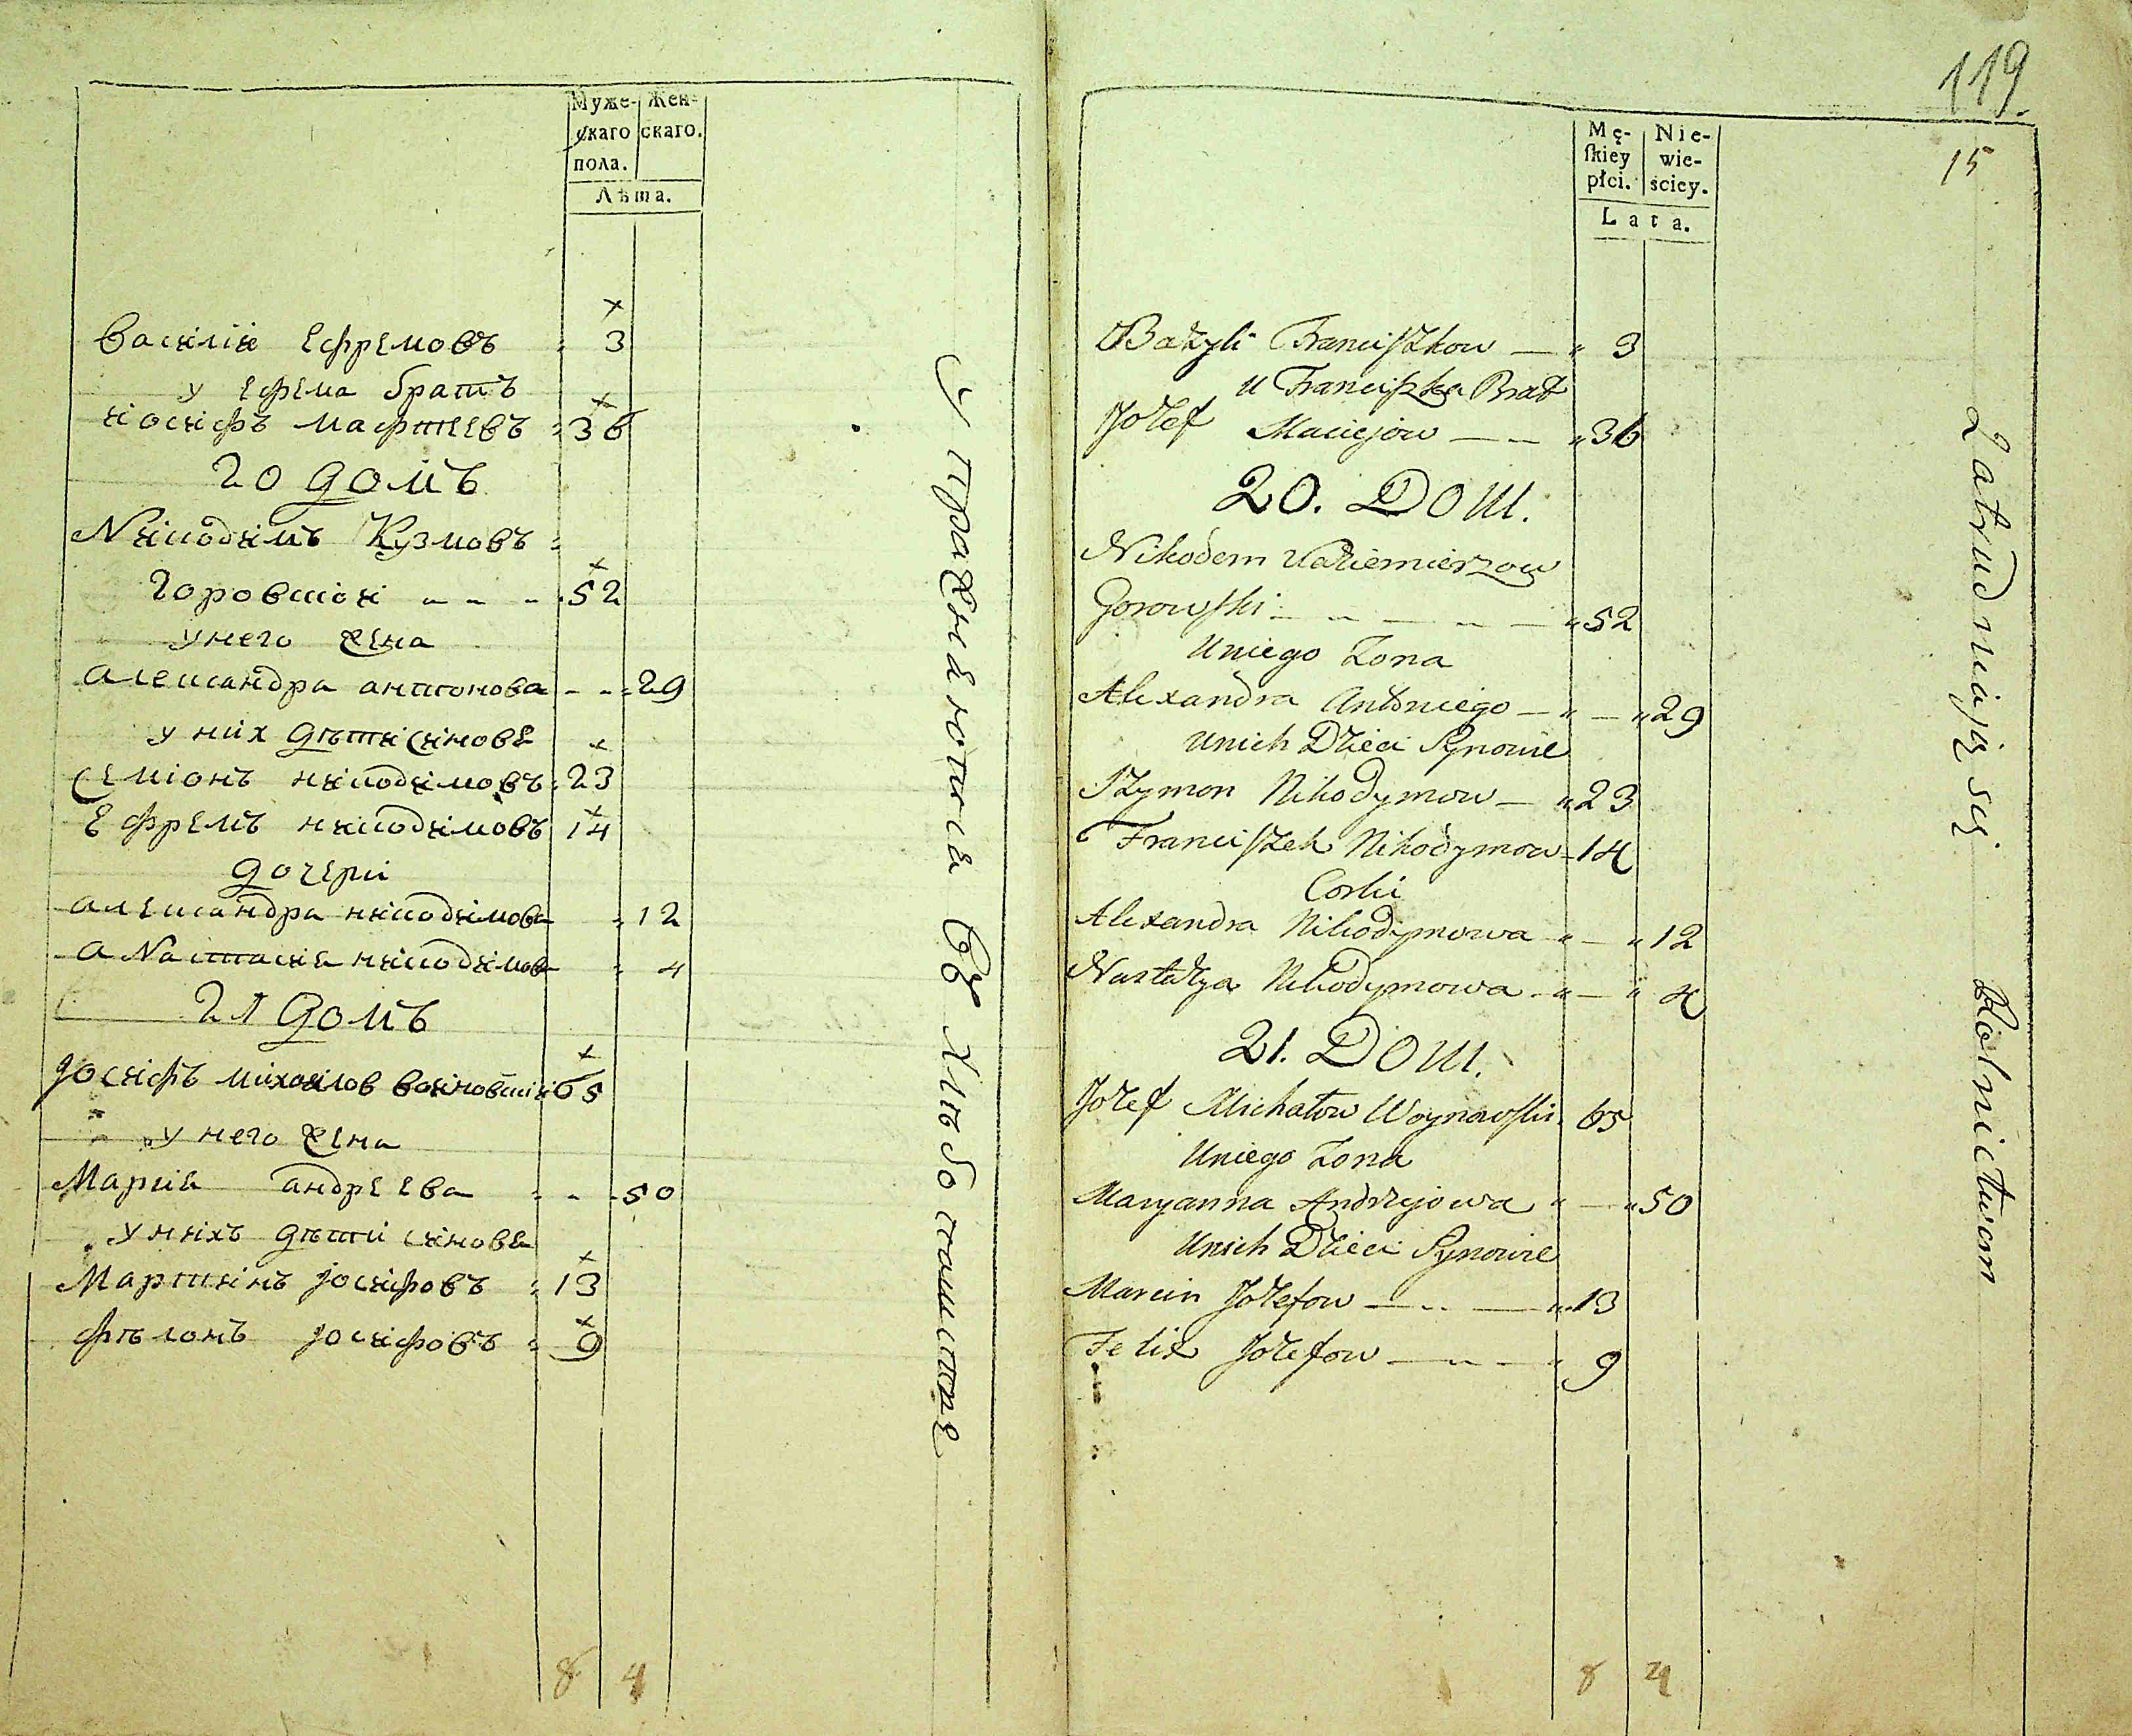 Муже-
скаго
пола.
Жен-
скаго.
Лѣта.
Василiи Ефремовъ 3
у Ефрема братъ
иосифъ Мафтеевъ 36
20 домъ
Никодимъ Кузмовъ
Горовский 52
у него жена
Александра антонова 29
у них дѣти синове
Семионъ никодимовъ 23
Ефремъ никодимовъ 14
дочери
александра никодимова 12
анастасия никодимова 4
21 домъ
Иосифъ михаилов воиновский 65
у него жена
Мария андреева 50
у нихъ дѣти синове
Мартинъ иосифовъ 13
Фѣлонъ иосифовъ 9
8 4
Упражняются въ хлѣбопашестве
119.
15
Mę-
skiey
płci.
Nie-
wie-
sciey.
Lata.
Bazyli Franciszkow — " 3
u Franciszka Brat
Jozef Maciejow — — " 36
20. Dom.
Nikodem Kaziemierzow
Gorowski — " — " — " 52
Uniego Zona
Alexandra Antoniego — " — " 29
Unich Dzieci Synowie
Szymon Nikodymow — " 23
Franciszek Nikodymow - 14
Corki
Alexandra Nikodymowa " — " 12
Nastazya Nikodymowa - " — " 4
21. Dom.
Jozef Michałow Woynowski 65
Uniego Zona
Maryanna Andrzejowa " — " 50
Unich Dzieci Synowie
Marcin Jozefow — .. — " 13
Felix Jozefow — " — " 9
8 4
Zatrudniają się Rolnictwem